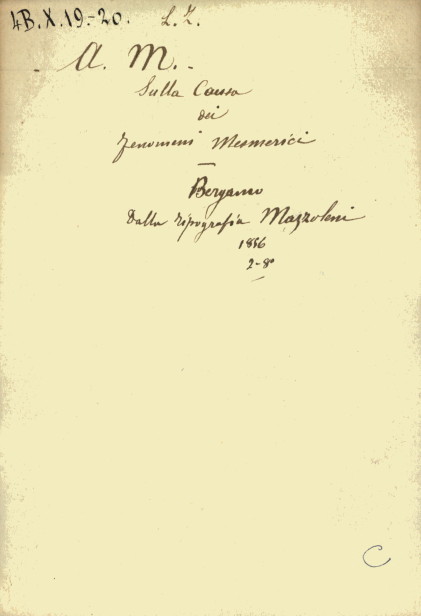 4B.X.19-20. L.Z.
A. M.
Sulla Causa
dei
fenomeni Mesmerici
Bergamo
Dalla tipografia Mazzoleni
1856
2-8°
C